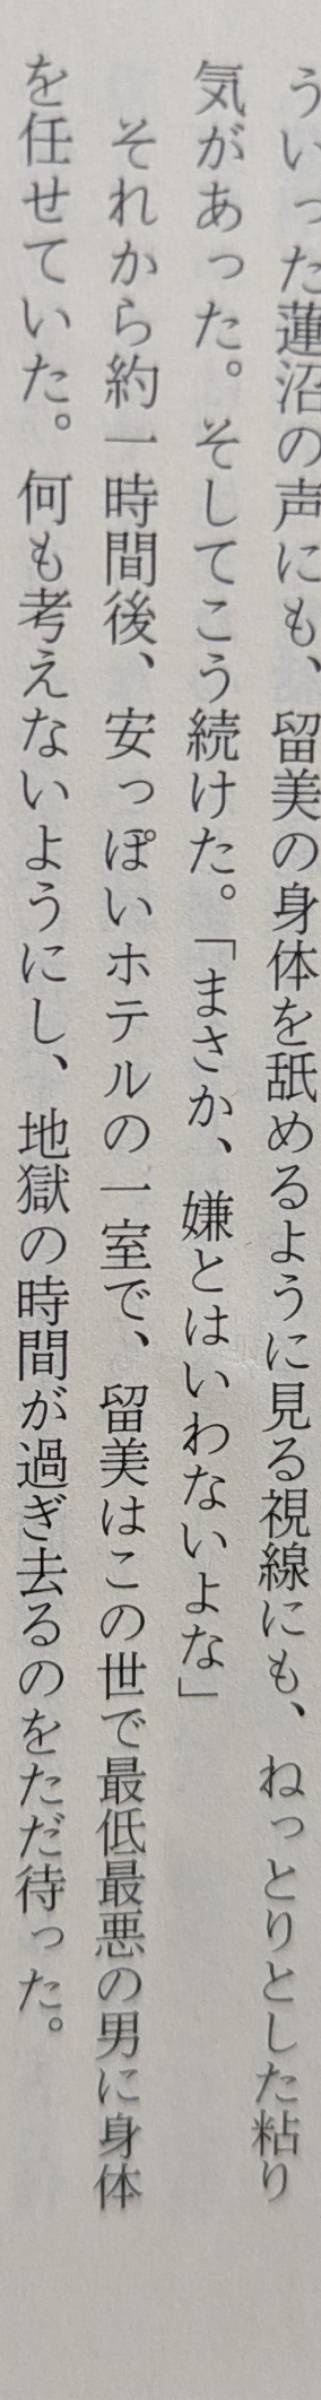 ういった蓮沼の声にも、留美の身体を舐めるように見る視線にも、ねっとりとした粘り
気があった。そしてこう続けた。「まさか、嫌とはいわないよな」
それから約一時間後、安っぽいホテルの一室で、留美はこの世で最低最悪の男に身体
を任せていた。何も考えないようにし、地獄の時間が過ぎ去るのをただ待った。